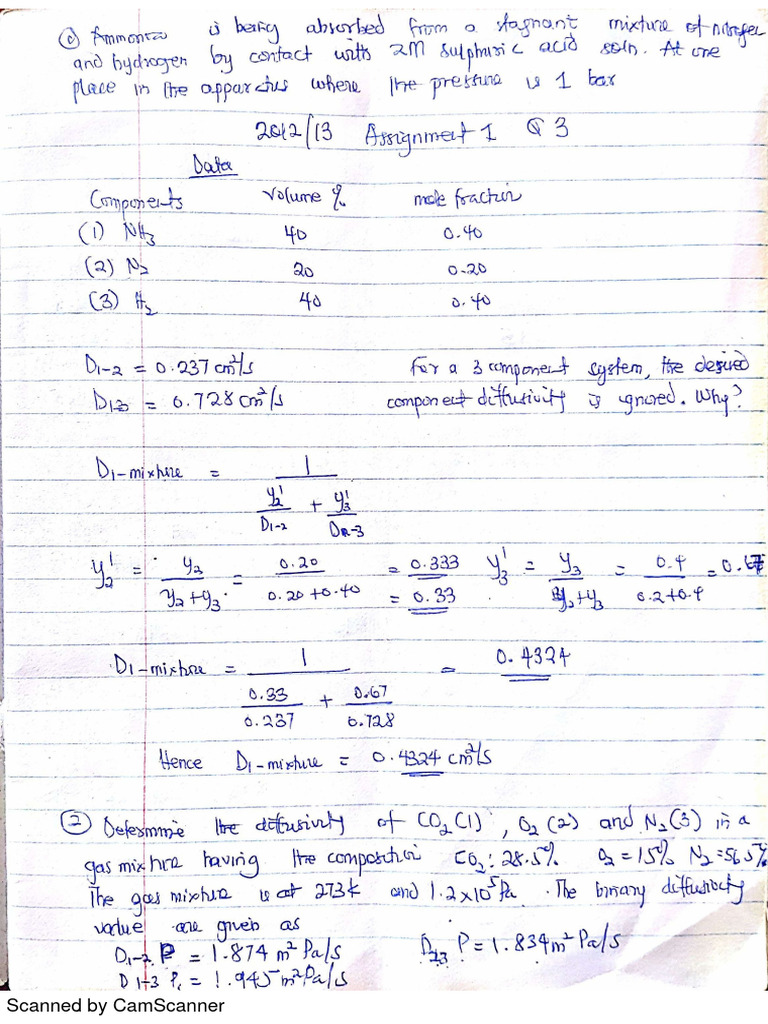 ① Ammonia is being absorbed from a stagnant mixture of nitrogen
and hydrogen by contact with 2M sulphuric acid soln. At one
place in the apparatus where the pressure is 1 bar
2012/13 Assignment 1 Q3
Data
Components Volume % mole fraction
(1) NH₃ 40 0.40
(2) N₂ 20 0.20
(3) H₂ 40 0.40
D₁₋₂ = 0.237 cm²/s For a 3 component system, the desired
D₁₃ = 0.728 cm²/s component diffusivity is ignored. Why?
D₁₋mixture = 1 / (y₂'/D₁₋₂ + y₃'/D₁₋₃)
y₂' = y₂/(y₂+y₃) = 0.20/(0.20+0.40) = 0.333 y₃' = y₃/(y₂+y₃) = 0.4/(0.2+0.4) = 0.67
= 0.33
D₁₋mixture = 1 / (0.33/0.237 + 0.67/0.728) = 0.4324
Hence D₁₋mixture = 0.4324 cm²/s
② Determine the diffusivity of CO₂(1), O₂(2) and N₂(3) in a
gas mixture having the composition CO₂: 28.5% O₂=15% N₂=56.5%
The gas mixture is at 273k and 1.2×10⁵Pa. The binary diffusivity
value are given as
D₁₋₂ P = 1.874 m² Pa/s D₂₃ P = 1.834 m² Pa/s
D₁₋₃ P = 1.945 m² Pa/s
Scanned by CamScanner